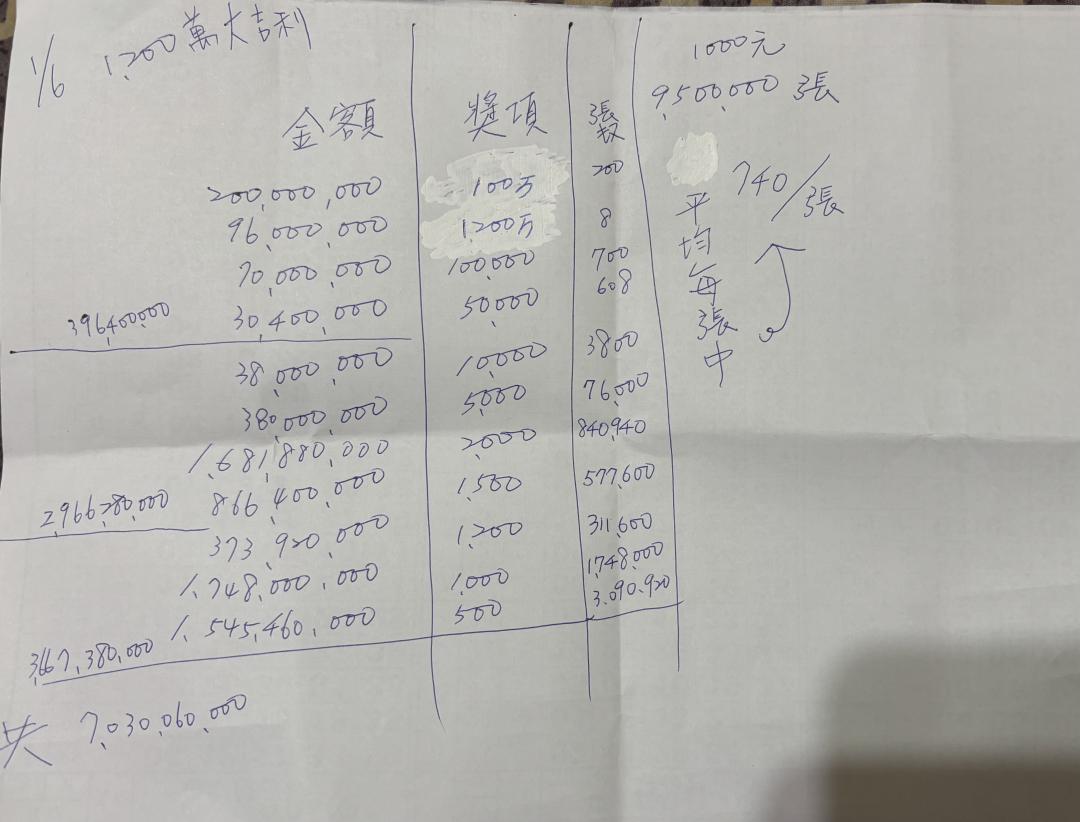 1/6 1,200萬大吉利
1000元
9,500,000張
金額 獎項 張数
740/張
平均每張中
200,000,000 100万 200
96,000,000 1,200万 8
70,000,000 100,000 700
396,400,000 30,400,000 50,000 608
38,000,000 10,000 3800
380,000,000 5,000 76,000
1,681,880,000 2,000 840,940
2,966,280,000 866,400,000 1,500 577,600
373,920,000 1,200 311,600
1,748,000,000 1,000 1,748,000
3,667,380,000 1,545,460,000 500 3,090,920
共 7,030,060,000